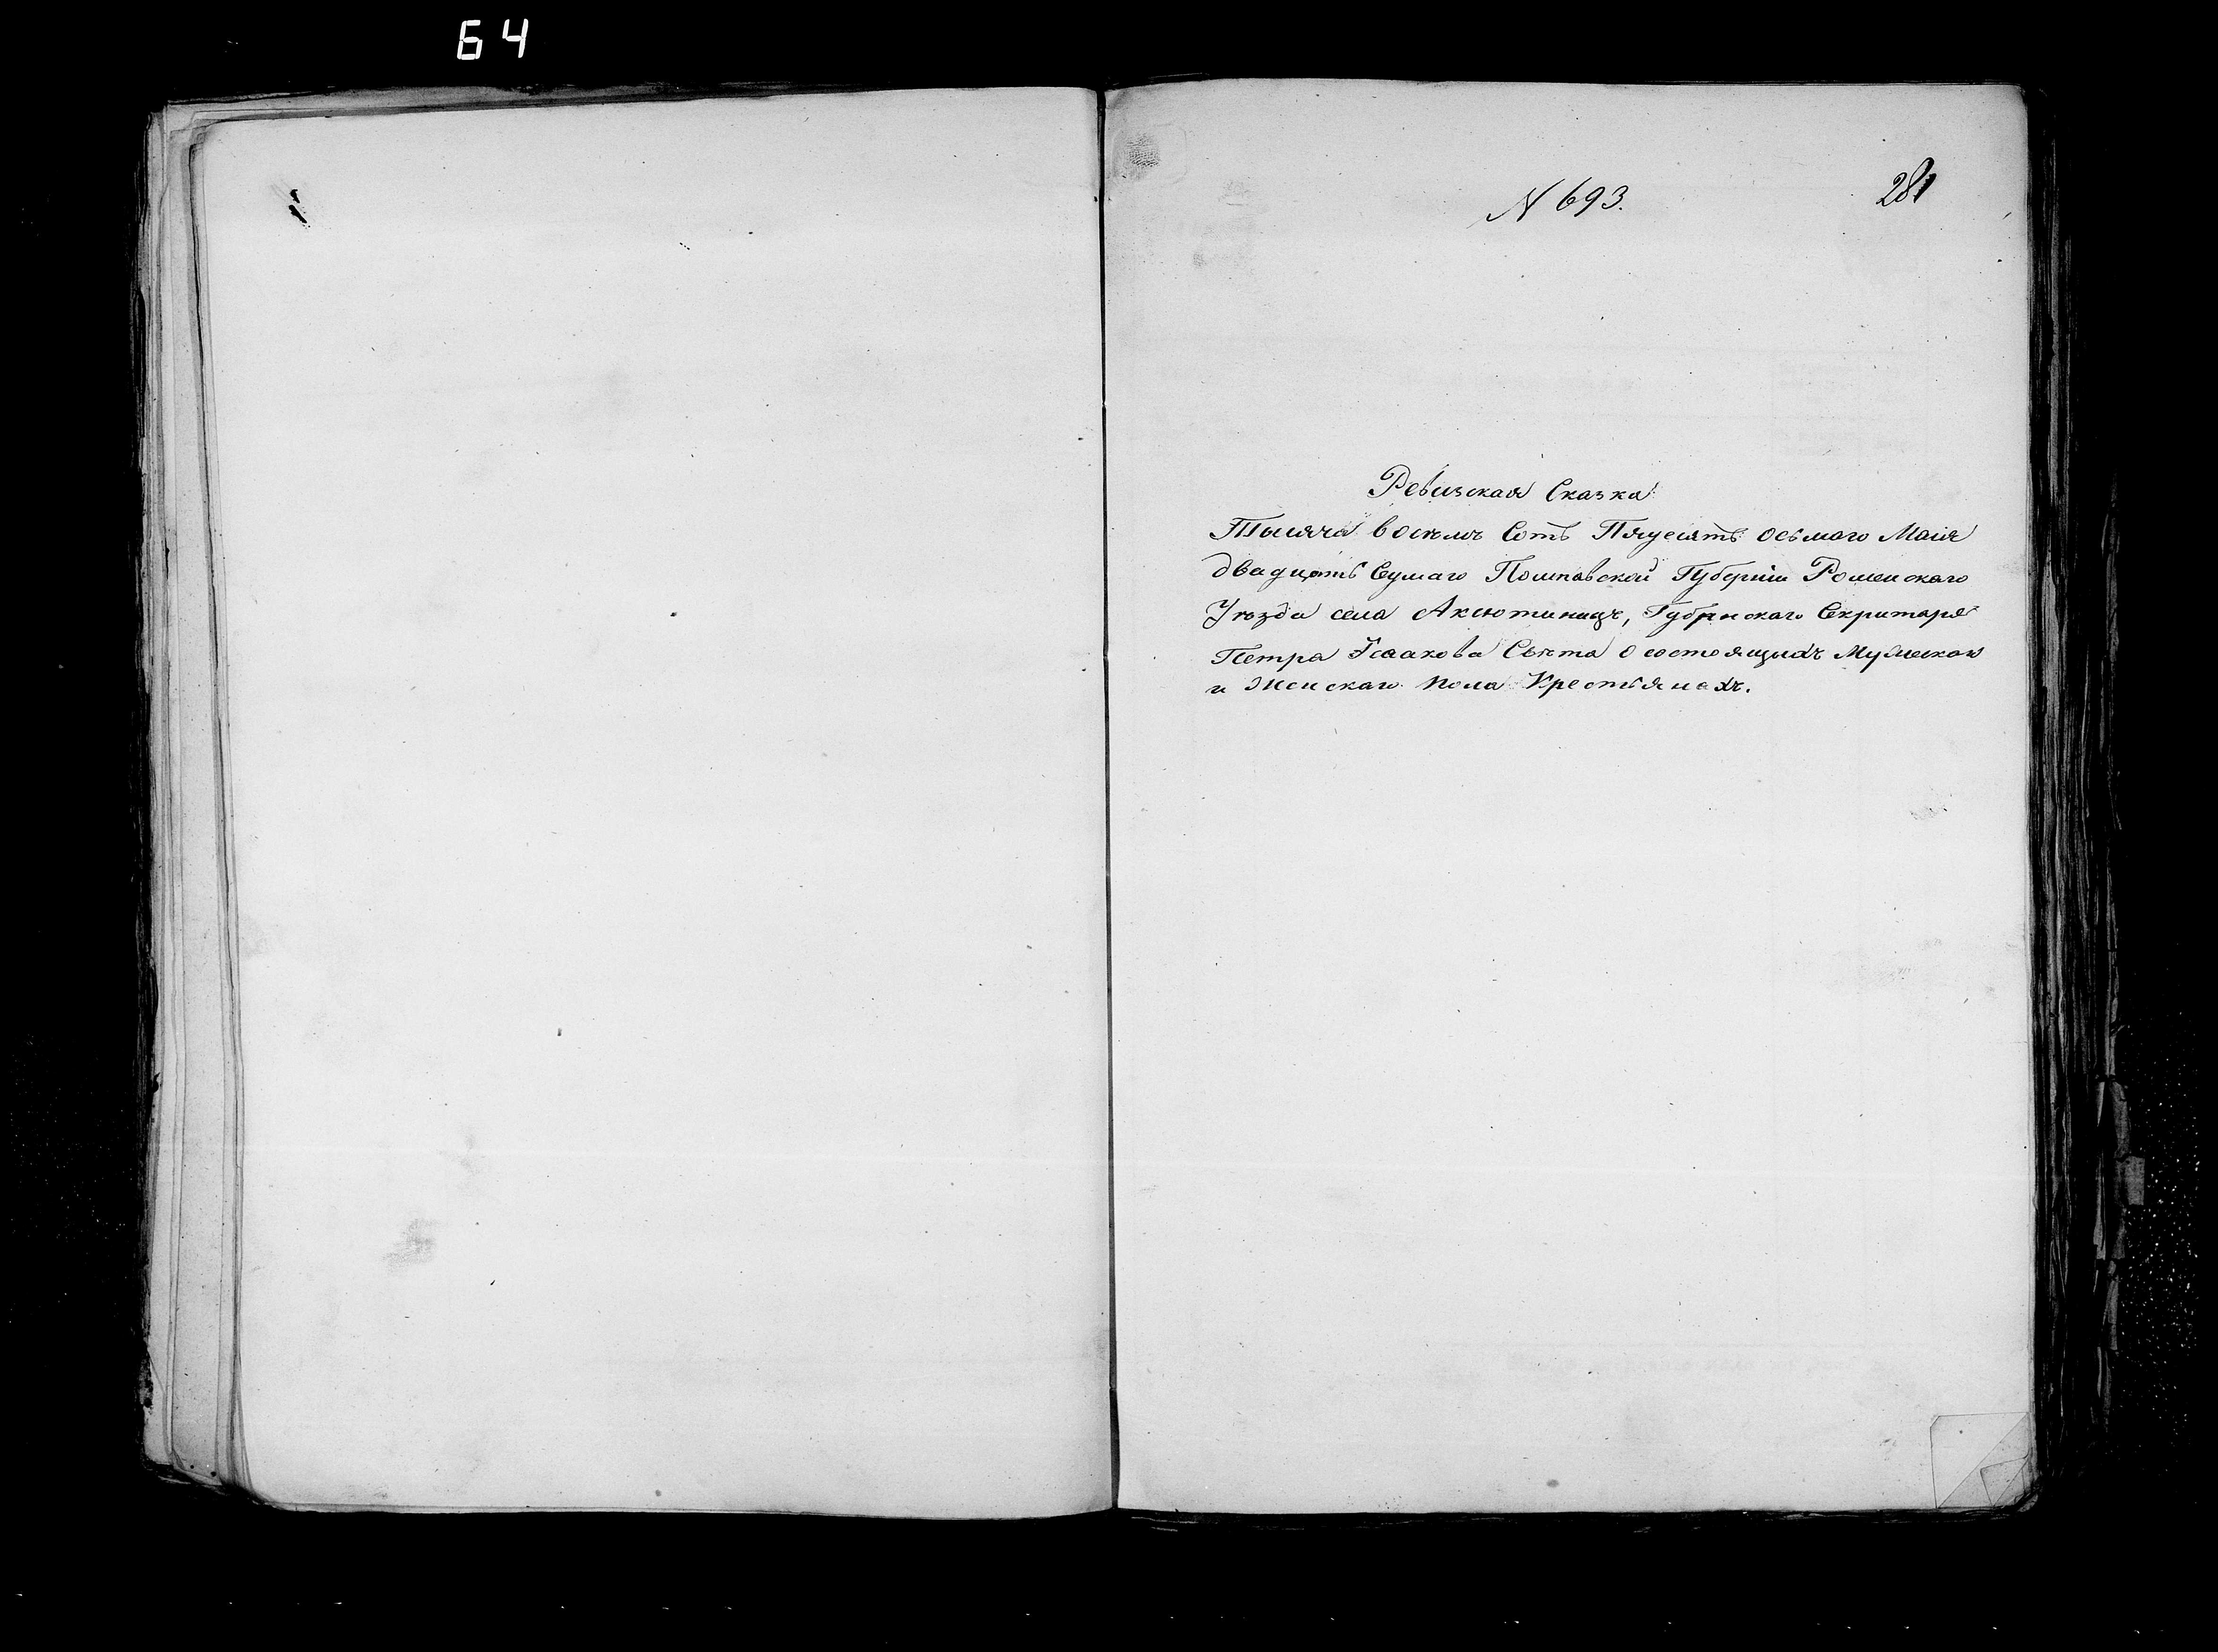 64
N 693.
281
Ревизская Сказка
Тысяча восемъ Сотъ Пядесятъ осьмаго Маія
двадцать Седмаго Полтавской Губерніи Роменскаго
Уѣзда села Аксютинецъ, Губрнскаго Секритаря
Петра Исаакова Сына о состоящихъ Мужеска
и Женскаго пола Крестьянахъ.